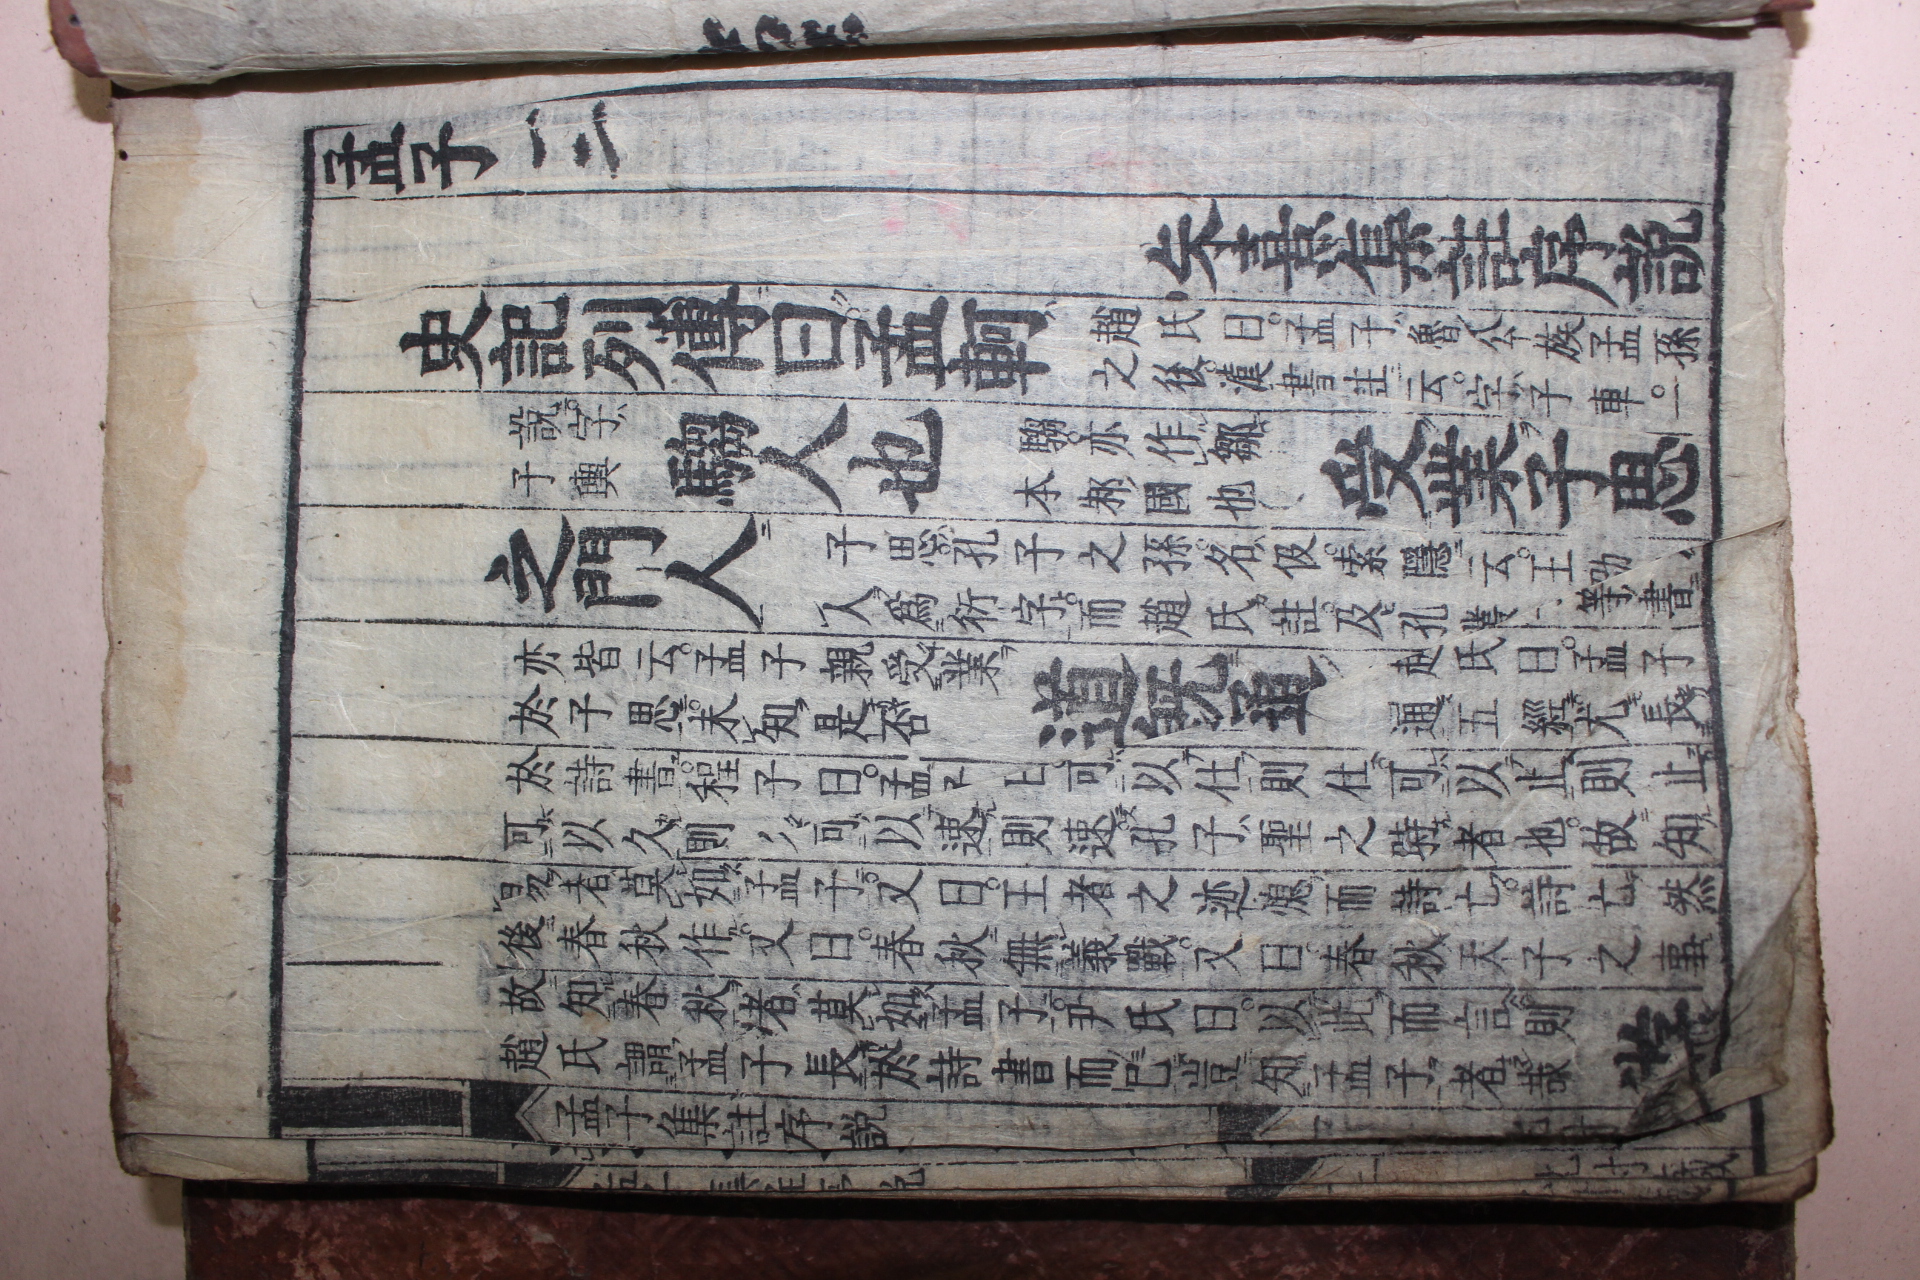 孟子 一
朱熹集註序說
史記列傳曰孟軻
趙氏曰孟子魯公族孟孫
之後漢書註云字子車一
說字
子輿
騶人也
騶亦作鄒
本邾國也
受業子思
之門人
子思孔子之孫名伋索隱云王劭
人爲衍字而趙氏註及孔叢等書
亦皆云孟子親受業
於子思未知是否
道旣通
趙氏曰孟子
通五經尤長
於詩書程子曰孟子曰可以仕則仕可以止則止
可以久則久可以速則速孔子聖之時者也故知
易者莫如孟子又曰王者之迹熄而詩亡詩亡然
後春秋作又曰春秋無義戰又曰春秋天子之事
故知春秋者莫如孟子尹氏曰以此而言則
趙氏謂孟子長於詩書而已豈知孟子者哉
當
孟子集註序說